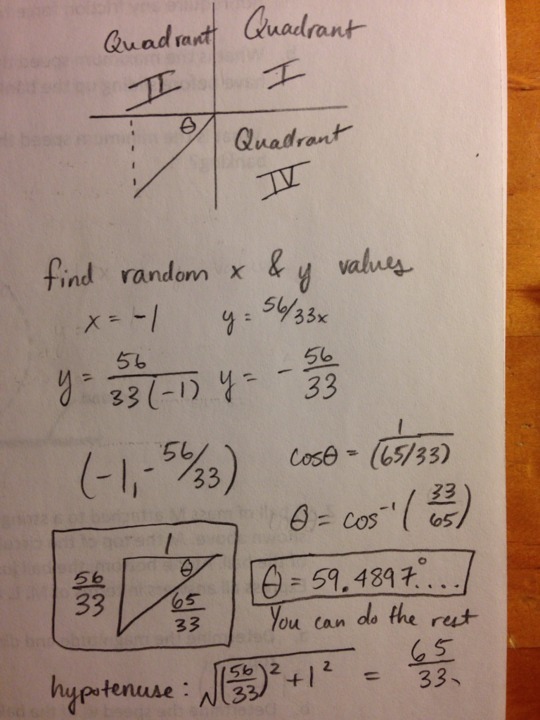 Quadrant Quadrant
II I
θ Quadrant
IV
find random x & y values
x = -1 y = 56/33x
y = 56/33(-1) y = - 56/33
(-1, -56/33) cosθ = 1/(65/33)
θ = cos⁻¹ (33/65)
1
θ
56/33
65/33
θ = 59.4897°....
You can do the rest
hypotenuse: √((56/33)² + 1²) = 65/33